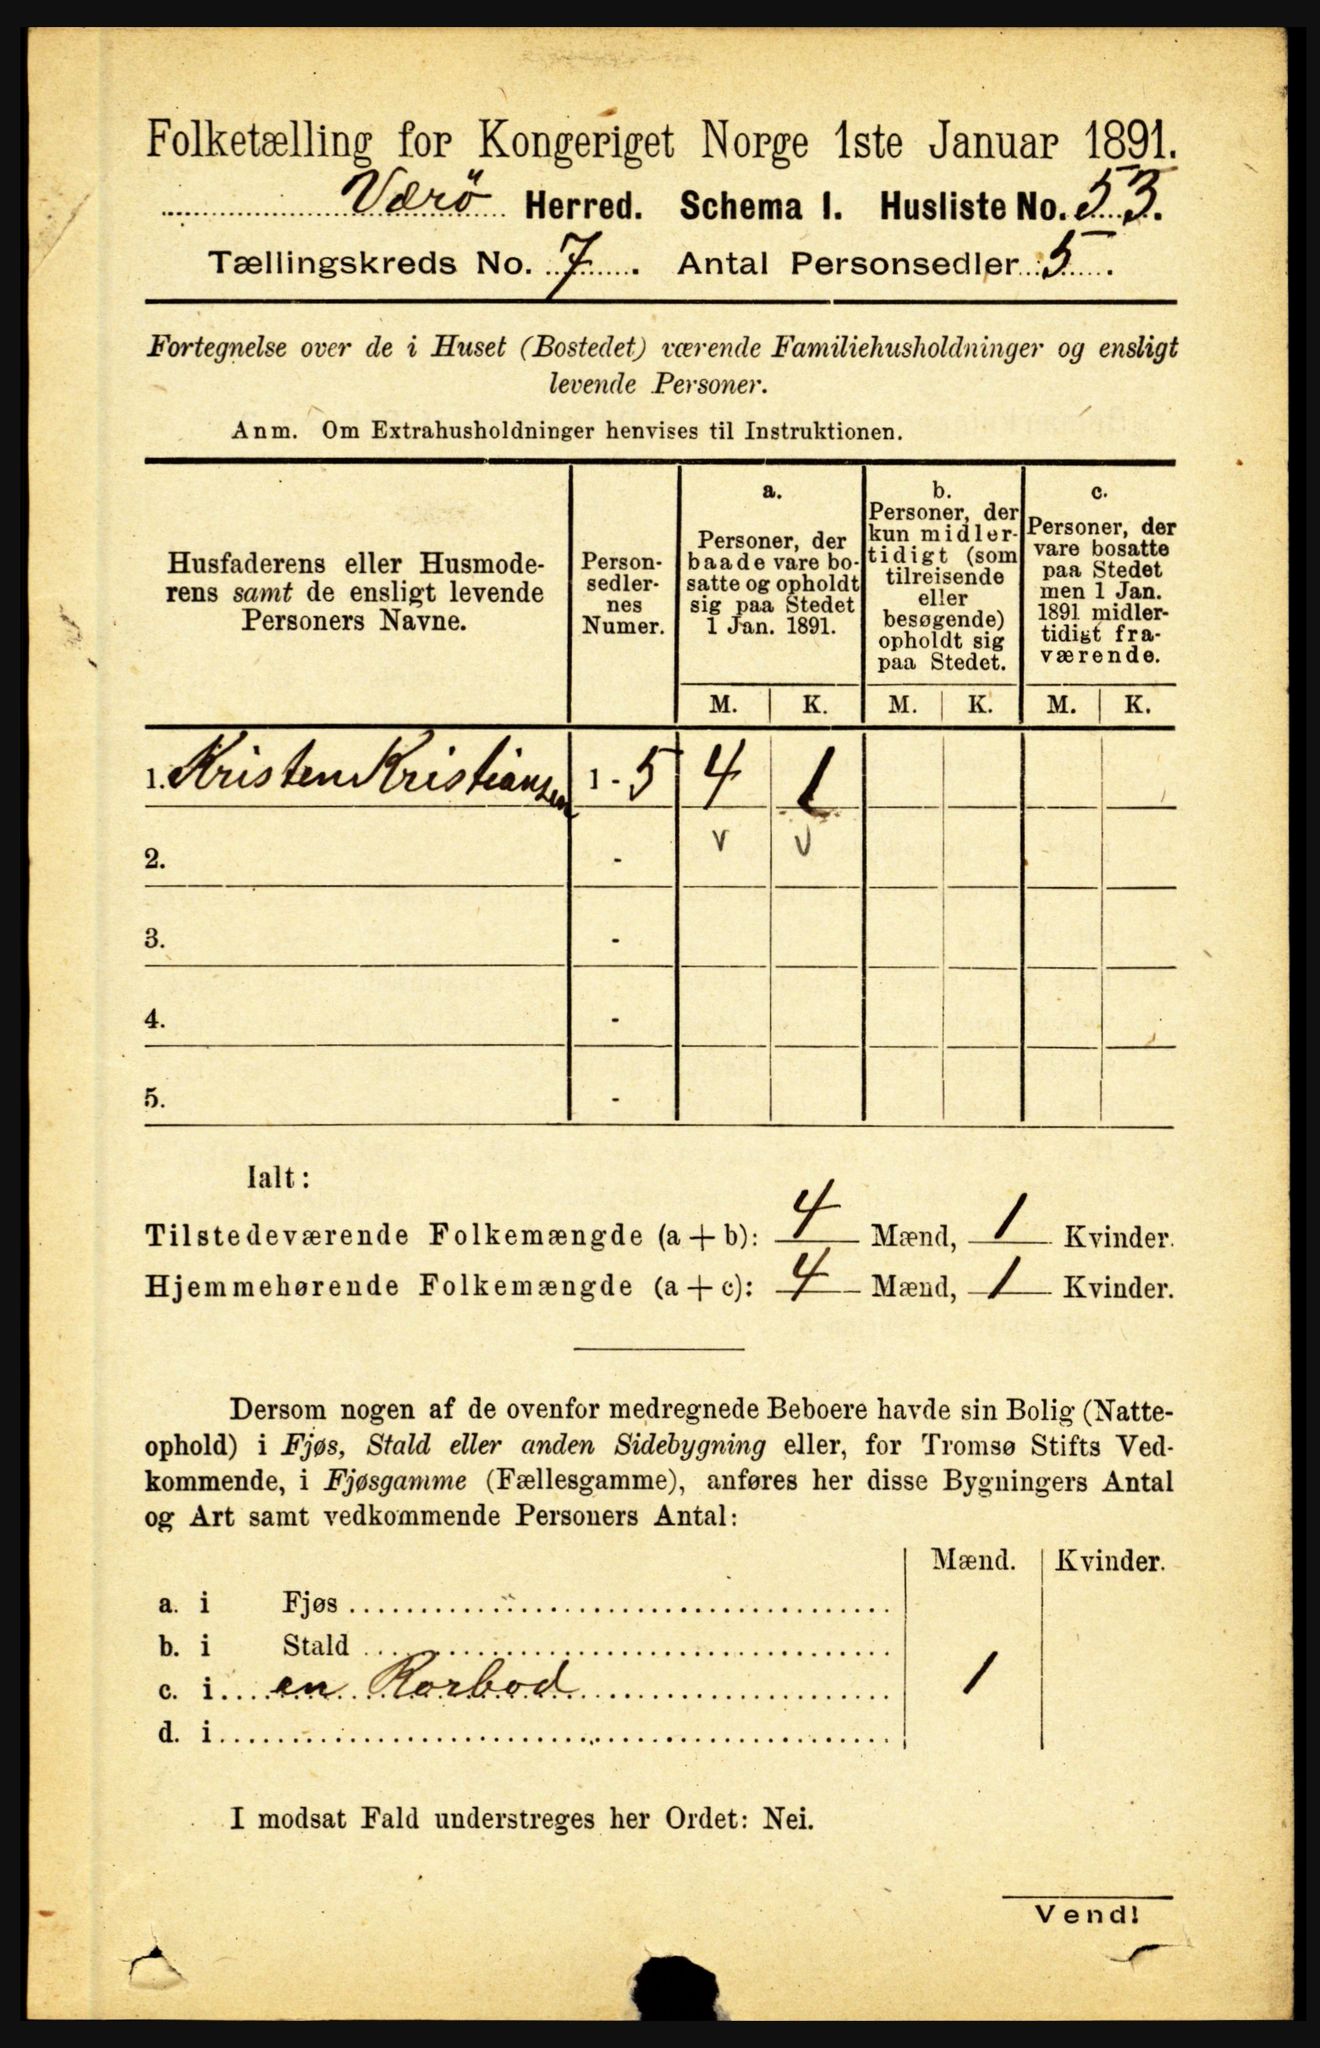 Folketælling for Kongeriget Norge 1ste Januar 1891.
Værö Herred. Schema 1. Husliste No. 53.
Tællingskreds No. 7. Antal Personsedler 5.
Fortegnelse over de i Huset (Bostedet) værende Familiehusholdninger og ensligt
levende Personer.
Anm. Om Extrahusholdninger henvises til Instruktionen.
Husfaderens eller Husmode-
rens samt de ensligt levende
Personers Navne.
Person-
sedler-
nes
Numer.
a.
Personer, der
baade vare bo-
satte og opholdt
sig paa Stedet
1 Jan. 1891.
b.
Personer, der
kun midler-
tidigt (som
tilreisende
eller
besøgende)
opholdt sig
paa Stedet.
c.
Personer, der
vare bosatte
paa Stedet
men 1 Jan.
1891 midler-
tidigt fra-
værende.
M. K. M. K. M. K.
1. Kristen Kristiansen 1 - 5 4 1
v v
2. -
3. -
4. -
5. -
Ialt:
Tilstedeværende Folkemængde (a + b): 4 Mænd, 1 Kvinder.
Hjemmehørende Folkemængde (a + c): 4 Mænd, 1 Kvinder.
Dersom nogen af de ovenfor medregnede Beboere havde sin Bolig (Natte-
ophold) i Fjøs, Stald eller anden Sidebygning eller, for Tromsø Stifts Ved-
kommende, i Fjøsgamme (Fællesgamme), anføres her disse Bygningers Antal
og Art samt vedkommende Personers Antal:
Mænd. Kvinder.
a. i Fjøs
b. i Stald
c. i en Rorbod 1
d. i
I modsat Fald understreges her Ordet: Nei.
Vend!